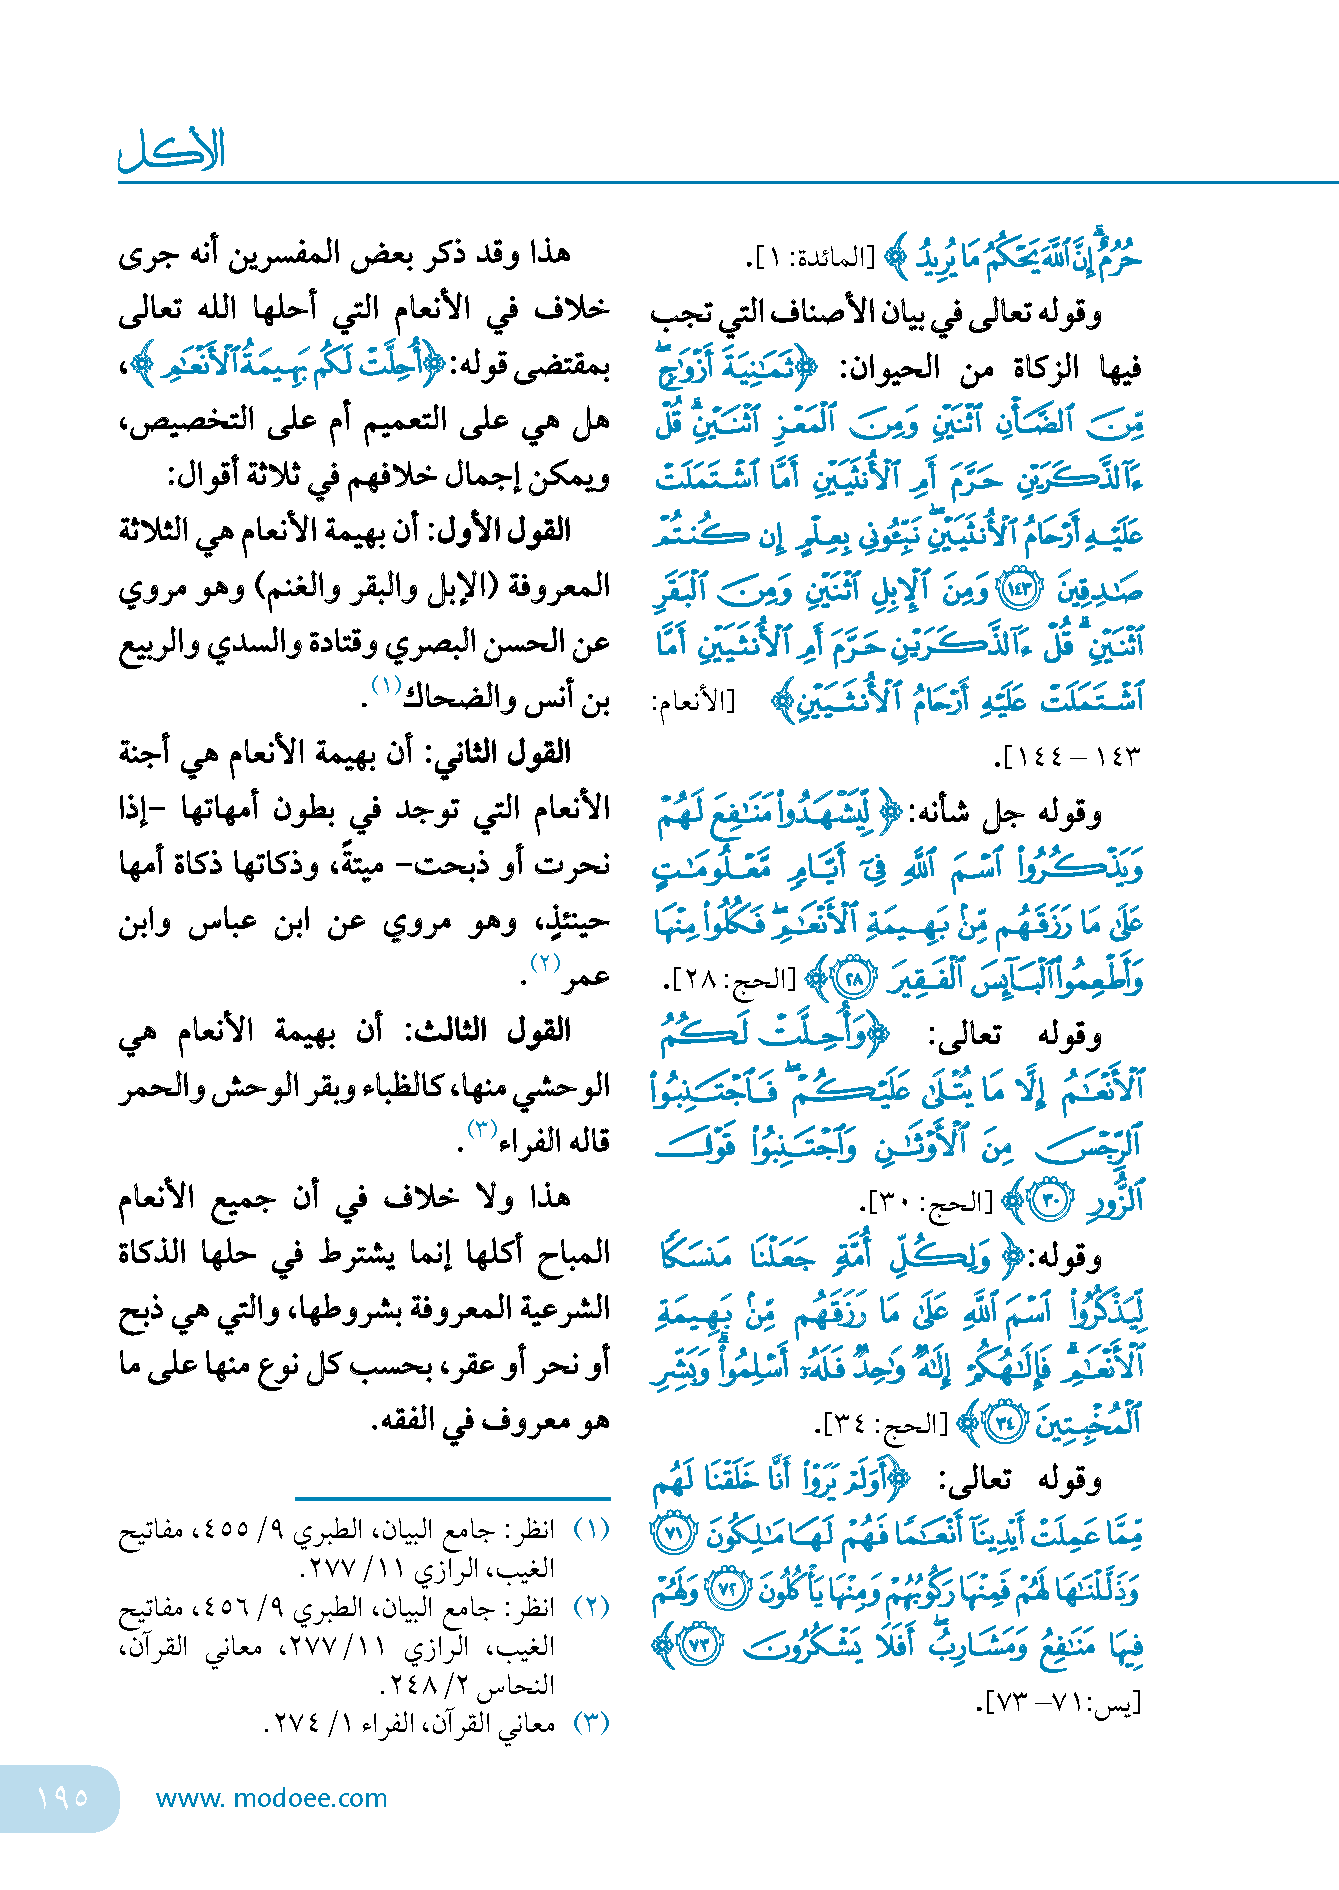 الأكل
حُرُمٌ ۗ إِنَّ ٱللَّهَ يَحْكُمُ مَا يُرِيدُ ﴾ [المائدة: ١].
وقوله تعالى في بيان الأصناف التي تجب
فيها الزكاة من الحيوان: ﴿ثَمَـٰنِيَةَ أَزْوَٰجٍ ۖ
مِّنَ ٱلضَّأْنِ ٱثْنَيْنِ وَمِنَ ٱلْمَعْزِ ٱثْنَيْنِ ۗ قُلْ
ءَآلذَّكَرَيْنِ حَرَّمَ أَمِ ٱلْأُنثَيَيْنِ أَمَّا ٱشْتَمَلَتْ
عَلَيْهِ أَرْحَامُ ٱلْأُنثَيَيْنِ ۖ نَبِّـُٔونِى بِعِلْمٍ إِن كُنتُمْ
صَـٰدِقِينَ ١٤٣ وَمِنَ ٱلْإِبِلِ ٱثْنَيْنِ وَمِنَ ٱلْبَقَرِ
ٱثْنَيْنِ ۗ قُلْ ءَآلذَّكَرَيْنِ حَرَّمَ أَمِ ٱلْأُنثَيَيْنِ أَمَّا
ٱشْتَمَلَتْ عَلَيْهِ أَرْحَامُ ٱلْأُنثَيَيْنِ﴾ [الأنعام:
١٤٣ – ١٤٤].
وقوله جل شأنه: ﴿ لِّيَشْهَدُوا۟ مَنَـٰفِعَ لَهُمْ
وَيَذْكُرُوا۟ ٱسْمَ ٱللَّهِ فِىٓ أَيَّامٍ مَّعْلُومَـٰتٍ
عَلَىٰ مَا رَزَقَهُم مِّنۢ بَهِيمَةِ ٱلْأَنْعَـٰمِ ۖ فَكُلُوا۟ مِنْهَا
وَأَطْعِمُوا۟ ٱلْبَآئِسَ ٱلْفَقِيرَ ٢٨ ﴾ [الحج: ٢٨].
وقوله تعالى: ﴿وَأُحِلَّتْ لَكُمُ
ٱلْأَنْعَـٰمُ إِلَّا مَا يُتْلَىٰ عَلَيْكُمْ ۖ فَٱجْتَنِبُوا۟
ٱلرِّجْسَ مِنَ ٱلْأَوْثَـٰنِ وَٱجْتَنِبُوا۟ قَوْلَ
ٱلزُّورِ ٣٠ ﴾ [الحج: ٣٠].
وقوله: ﴿ وَلِكُلِّ أُمَّةٍ جَعَلْنَا مَنسَكًا
لِّيَذْكُرُوا۟ ٱسْمَ ٱللَّهِ عَلَىٰ مَا رَزَقَهُم مِّنۢ بَهِيمَةِ
ٱلْأَنْعَـٰمِ ۗ فَإِلَـٰهُكُمْ إِلَـٰهٌ وَٰحِدٌ فَلَهُۥٓ أَسْلِمُوا۟ ۗ وَبَشِّرِ
ٱلْمُخْبِتِينَ ٣٤ ﴾ [الحج: ٣٤].
وقوله تعالى: ﴿أَوَلَمْ يَرَوْا۟ أَنَّا خَلَقْنَا لَهُم
مِّمَّا عَمِلَتْ أَيْدِينَآ أَنْعَـٰمًا فَهُمْ لَهَا مَـٰلِكُونَ ٧١
وَذَلَّلْنَـٰهَا لَهُمْ فَمِنْهَا رَكُوبُهُمْ وَمِنْهَا يَأْكُلُونَ ٧٢ وَلَهُمْ
فِيهَا مَنَـٰفِعُ وَمَشَارِبُ ۖ أَفَلَا يَشْكُرُونَ ٧٣ ﴾
[يس:٧١– ٧٣].
هذا وقد ذكر بعض المفسرين أنه جرى
خلاف في الأنعام التي أحلها الله تعالى
بمقتضى قوله: ﴿أُحِلَّتْ لَكُم بَهِيمَةُ ٱلْأَنْعَـٰمِ ﴾،
هل هي على التعميم أم على التخصيص،
ويمكن إجمال خلافهم في ثلاثة أقوال:
القول الأول: أن بهيمة الأنعام هي الثلاثة
المعروفة (الإبل والبقر والغنم) وهو مروي
عن الحسن البصري وقتادة والسدي والربيع
بن أنس والضحاك(١).
القول الثاني: أن بهيمة الأنعام هي أجنة
الأنعام التي توجد في بطون أمهاتها -إذا
نحرت أو ذبحت- ميتةً، وذكاتها ذكاة أمها
حينئذٍ، وهو مروي عن ابن عباس وابن
عمر(٢).
القول الثالث: أن بهيمة الأنعام هي
الوحشي منها، كالظباء وبقر الوحش والحمر
قاله الفراء(٣).
هذا ولا خلاف في أن جميع الأنعام
المباح أكلها إنما يشترط في حلها الذكاة
الشرعية المعروفة بشروطها، والتي هي ذبح
أو نحر أو عقر، بحسب كل نوع منها على ما
هو معروف في الفقه.
(١) انظر: جامع البيان، الطبري ٩/ ٤٥٥، مفاتيح
الغيب، الرازي ١١/ ٢٧٧.
(٢) انظر: جامع البيان، الطبري ٩/ ٤٥٦، مفاتيح
الغيب، الرازي ١١/ ٢٧٧، معاني القرآن،
النحاس ٢/ ٢٤٨.
(٣) معاني القرآن، الفراء ١/ ٢٧٤.
www. modoee.com
١٩٥